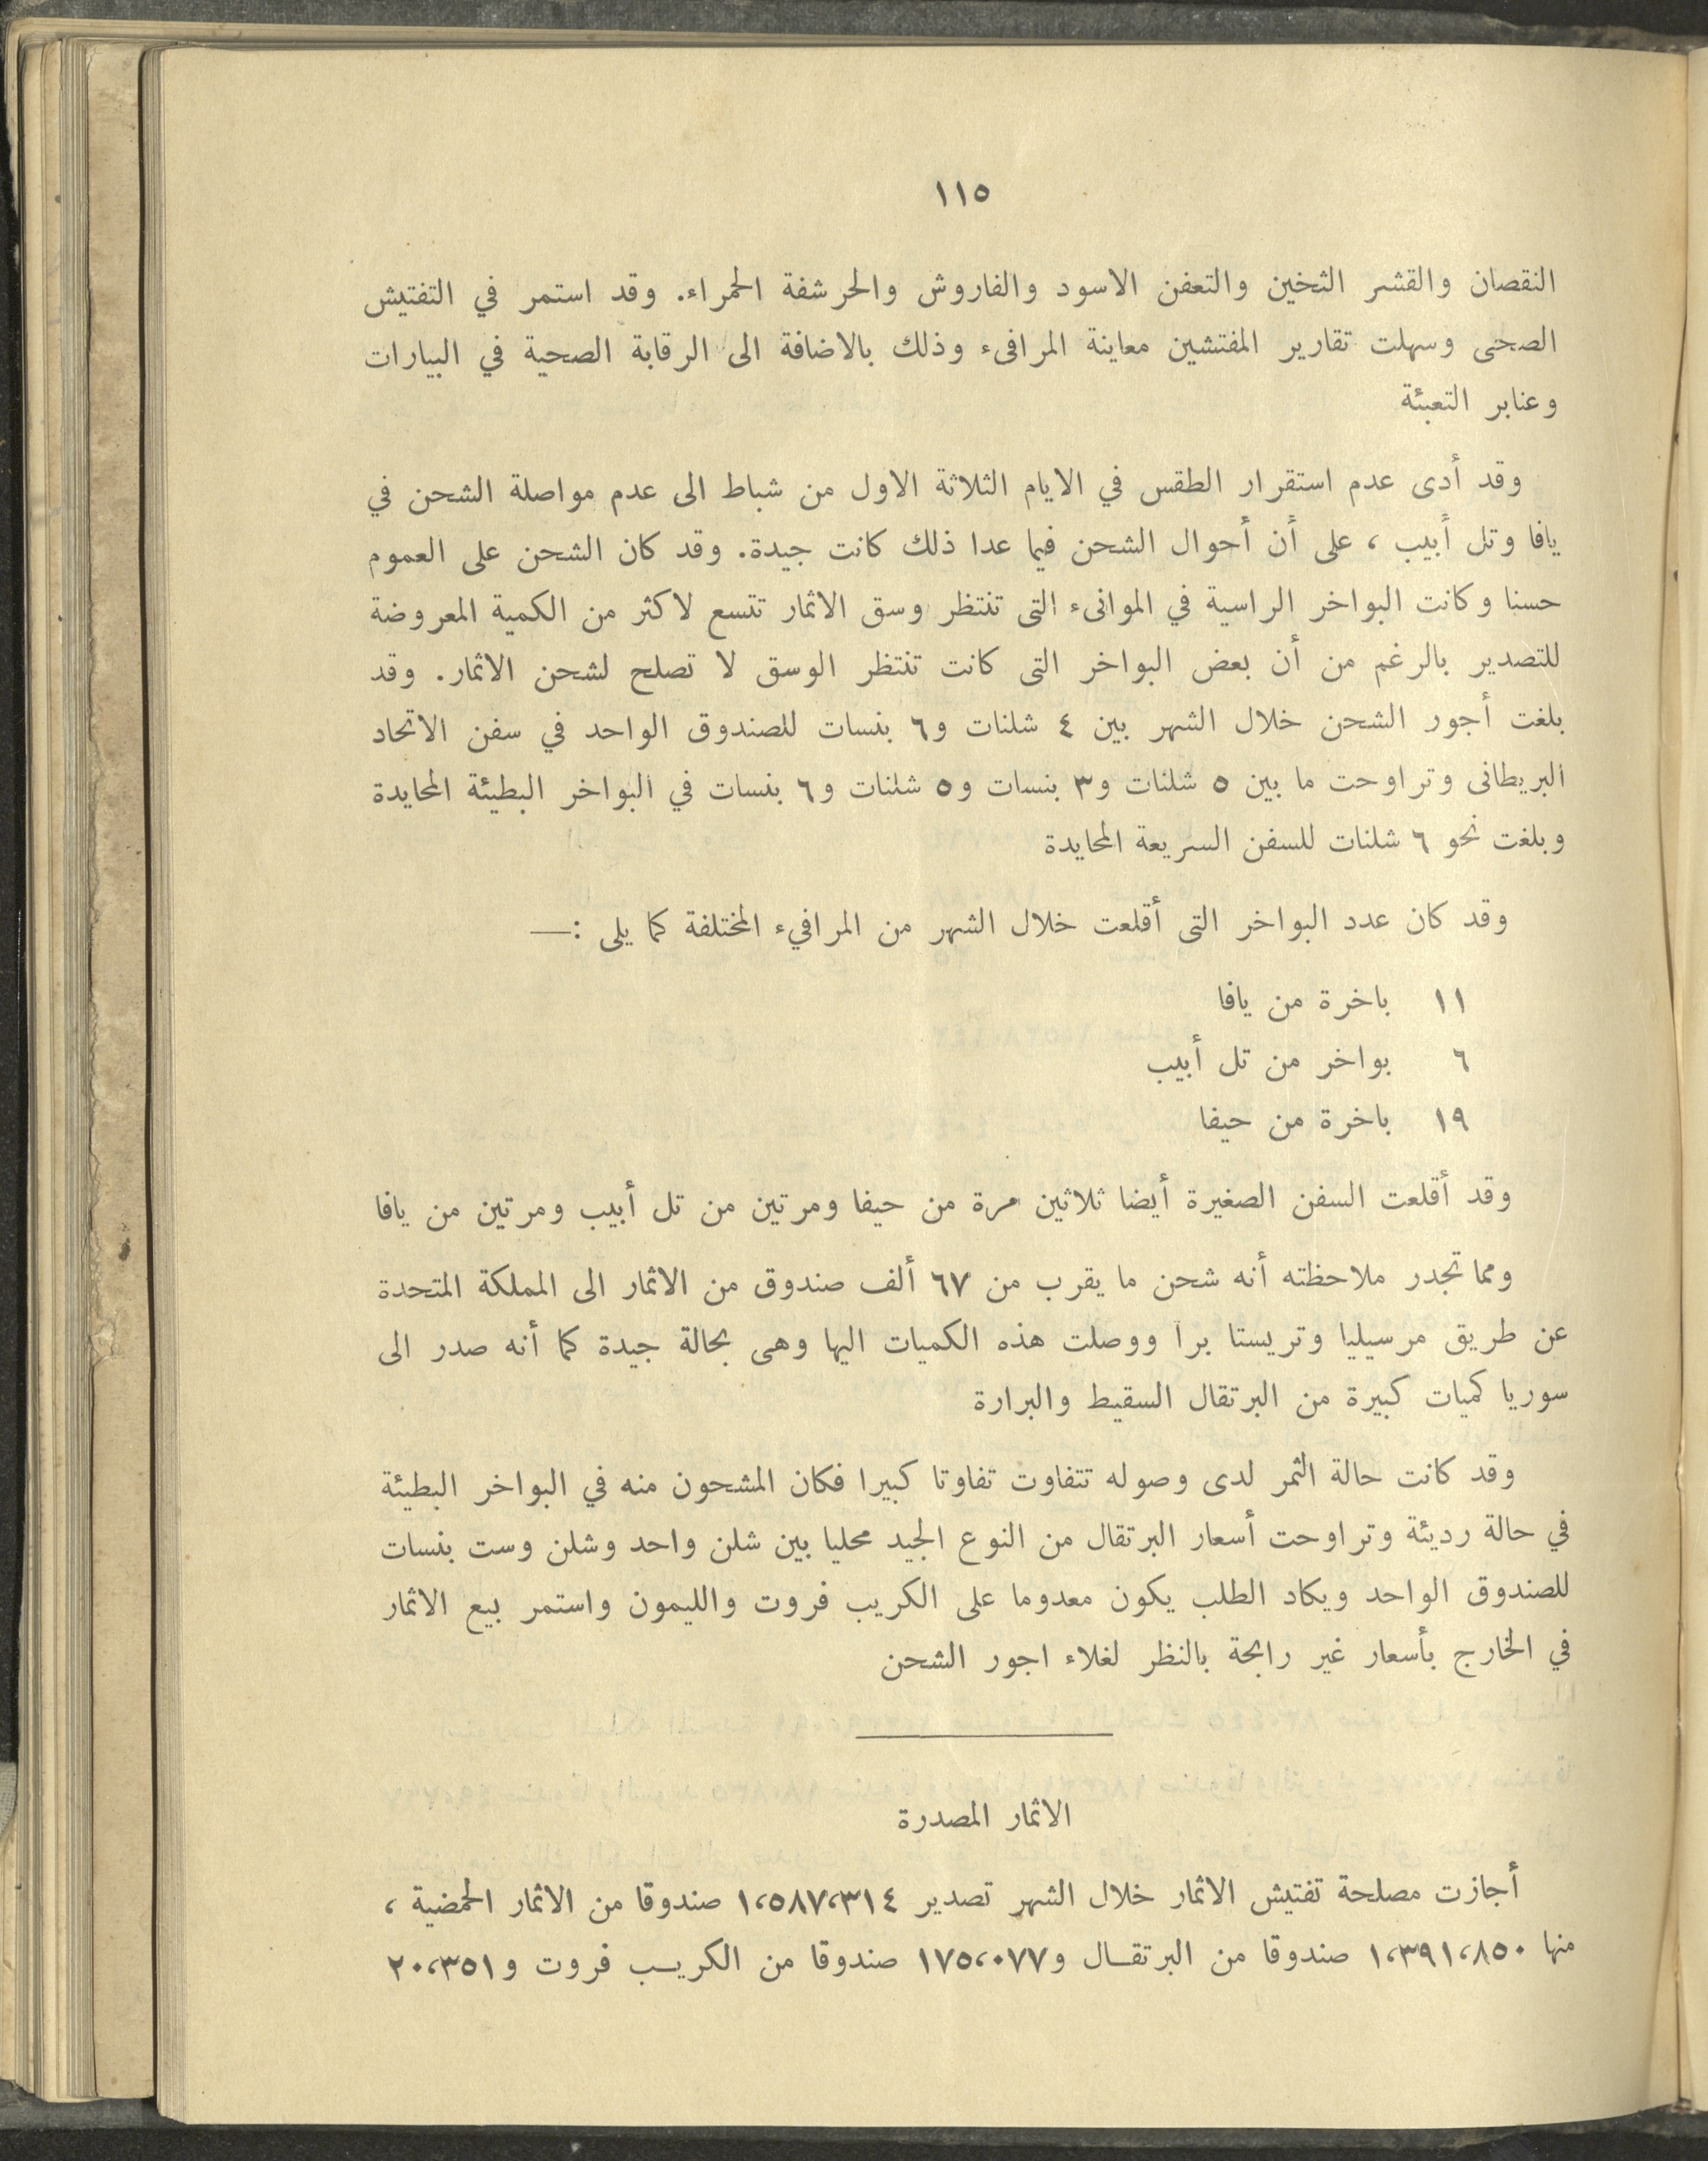 ١١٥
النقصان والقشر الثخين والتعفن الاسود والفاروش والحرشفة الحمراء. وقد استمر في التفتيش
الصحى وسهلت تقارير المفتشين معاينة المرافىء وذلك بالاضافة الى الرقابة الصحية في البيارات
وعنابر التعبئة
وقد أدى عدم استقرار الطقس في الايام الثلاثة الاول من شباط الى عدم مواصلة الشحن في
يافا وتل أبيب ، على أن أحوال الشحن فيما عدا ذلك كانت جيدة. وقد كان الشحن على العموم
حسنا وكانت البواخر الراسية في الموانىء التى تنتظر وسق الاثمار تتسع لاكثر من الكمية المعروضة
للتصدير بالرغم من أن بعض البواخر التى كانت تنتظر الوسق لا تصلح لشحن الاثمار. وقد
بلغت أجور الشحن خلال الشهر بين ٤ شلنات و٦ بنسات للصندوق الواحد في سفن الاتحاد
البريطانى وتراوحت ما بين ٥ شلنات و٣ بنسات و٥ شلنات و٦ بنسات في البواخر البطيئة المحايدة
وبلغت نحو ٦ شلنات للسفن السريعة المحايدة
وقد كان عدد البواخر التى أقلعت خلال الشهر من المرافيء المختلفة كما يلى :—
١١ باخرة من يافا
٦ بواخر من تل أبيب
١٩ باخرة من حيفا
وقد أقلعت السفن الصغيرة أيضا ثلاثين مرة من حيفا ومرتين من تل أبيب ومرتين من يافا
ومما تجدر ملاحظته أنه شحن ما يقرب من ٦٧ ألف صندوق من الاثمار الى المملكة المتحدة
عن طريق مرسيليا وتريستا برا ووصلت هذه الكميات اليها وهى بحالة جيدة كما أنه صدر الى
سوريا كميات كبيرة من البرتقال السقيط والبرارة
وقد كانت حالة الثمر لدى وصوله تتفاوت تفاوتا كبيرا فكان المشحون منه في البواخر البطيئة
في حالة رديئة وتراوحت أسعار البرتقال من النوع الجيد محليا بين شلن واحد وشلن وست بنسات
للصندوق الواحد ويكاد الطلب يكون معدوما على الكريب فروت والليمون واستمر بيع الاثمار
في الخارج بأسعار غير رابحة بالنظر لغلاء اجور الشحن
الاثمار المصدرة
أجازت مصلحة تفتيش الاثمار خلال الشهر تصدير ١،٥٨٧،٣١٤ صندوقا من الاثمار الحمضية ،
منها ١،٣٩١،٨٥٠ صندوقا من البرتقـال و١٧٥،٠٧٧ صندوقا من الكريـب فروت و٢٠،٣٥١